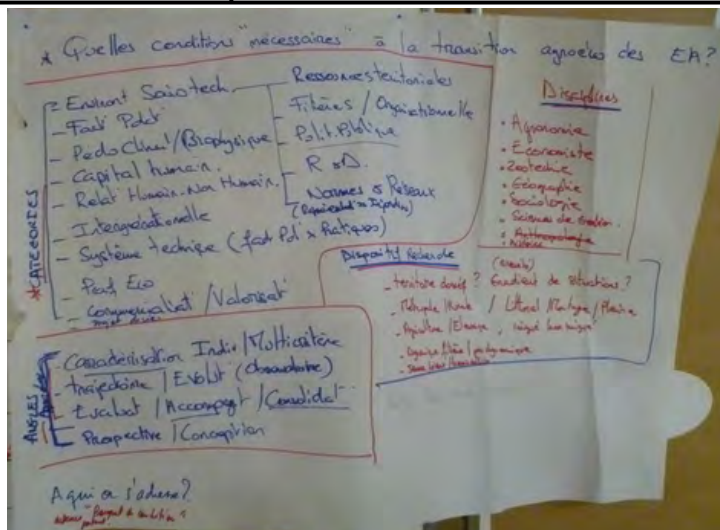 * Quelles conditions "nécessaires" à la transition agroéco des EA?
* CATEGORIES
- Environt Sociotech
- Fact Podet
- PedoClimat/Biophysique
- Capital humain.
- Relat Humain-Non Humain.
- Intergénérationelle
- Système technique (fact Pol x Pratiques)
- Perf Eco
- Commercialisat / Valorisat
- Ressources territoriales
- Filières / Organisationnelle
- Polit. Publique
- R & D.
- Normes & Réseaux
Disciplines
• Agronomie
• Economiste
• Zootechie
• Géographie
• Sociologie
• Sciences de Gestion
• Anthropologie
Dispositif Recherche
- territoire ? Gradient de situations?
- Métropole / / Littoral Montagne / Plaine
- Agriculture / Elevage
ANGLES
- Caractérisation Indiv / Multicritère
- trajectoire / Evolut (observatoire)
- Evaluat / Accompagt / Consolidat
- Prospective / Conception
A qui on s'adresse?